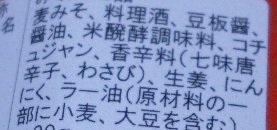 麦みそ、料理酒、豆板醤、
醤油、米醗酵調味料、コチ
ュジャン、香辛料(七味唐
辛子、わさび)、生姜、にん
にく、ラー油(原材料の一
部に小麦、大豆を含む)
名